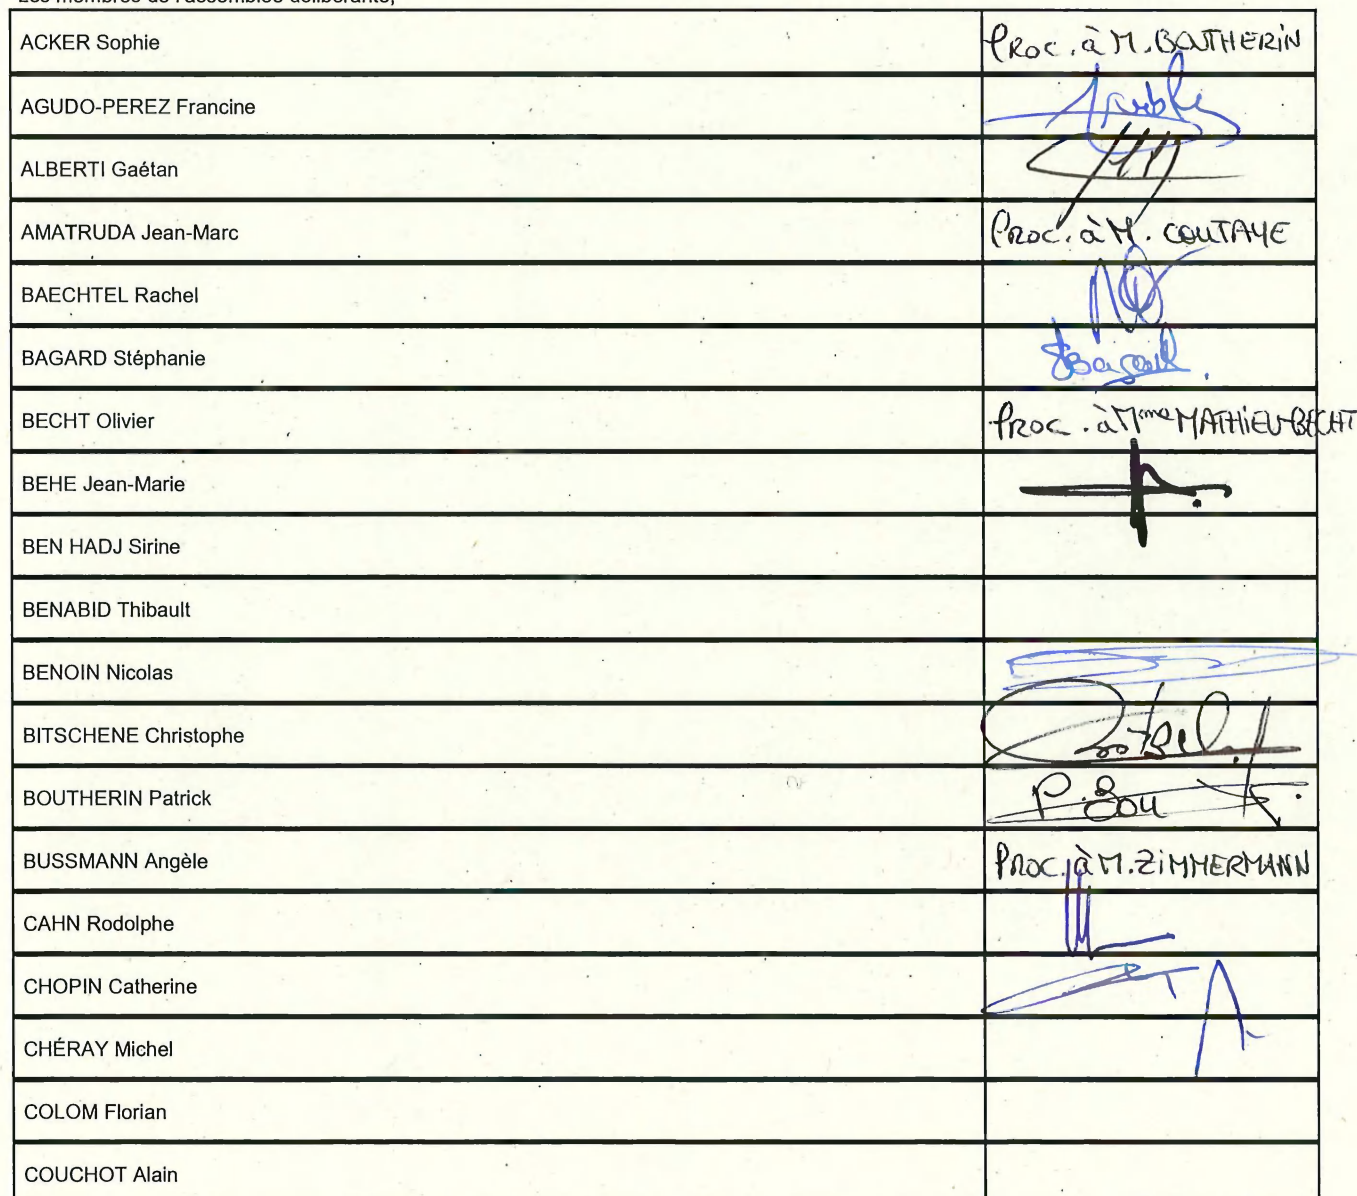 Les membres de l'assemblée délibérante,
ACKER Sophie Proc. à M. BOUTHERIN
AGUDO-PEREZ Francine
ALBERTI Gaétan
AMATRUDA Jean-Marc Proc. à M. COUTAYE
BAECHTEL Rachel
BAGARD Stéphanie
BECHT Olivier Proc. à Mme MATHIEU-BECHT
BEHE Jean-Marie
BEN HADJ Sirine
BENABID Thibault
BENOIN Nicolas
BITSCHENE Christophe
BOUTHERIN Patrick P. Bou
BUSSMANN Angèle Proc. à M. ZIMMERMANN
CAHN Rodolphe
CHOPIN Catherine
CHÉRAY Michel
COLOM Florian
COUCHOT Alain